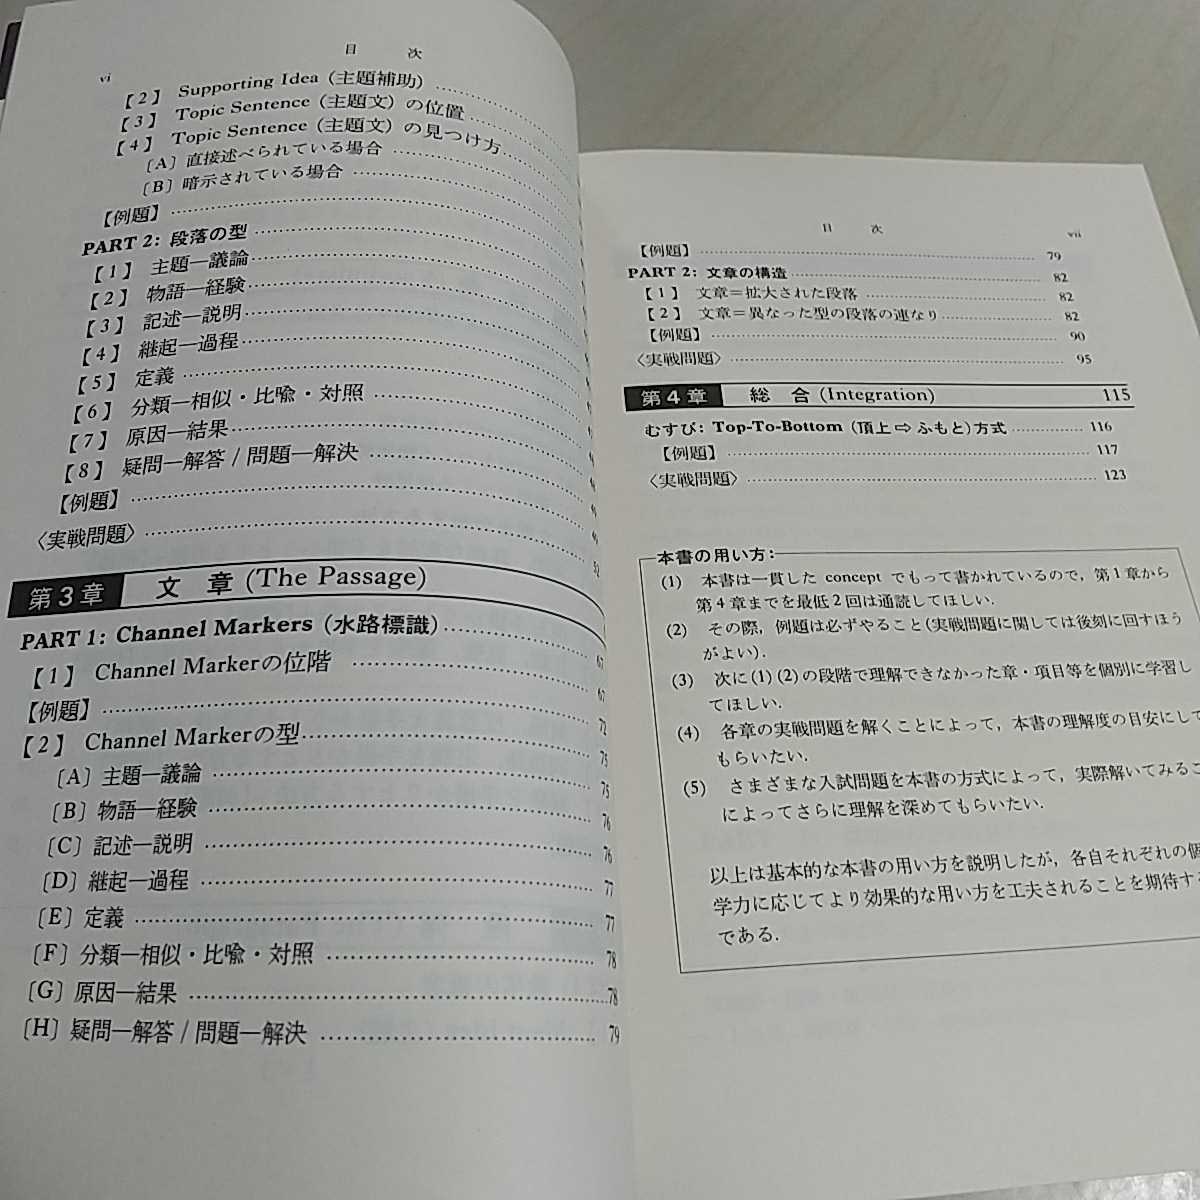 vi
目 次
【2】 Supporting Idea（主題補助）
【3】 Topic Sentence（主題文）の位置
【4】 Topic Sentence（主題文）の見つけ方
〔A〕直接述べられている場合
〔B〕暗示されている場合
【例題】
PART 2: 段落の型
【1】 主題―議論
【2】 物語―経験
【3】 記述―説明
【4】 継起―過程
【5】 定義
【6】 分類―相似・比喩・対照
【7】 原因―結果
【8】 疑問―解答 / 問題―解決
【例題】
〈実戦問題〉 52
第3章 文 章 (The Passage)
PART 1: Channel Markers（水路標識） 67
【1】 Channel Markerの位階 67
【例題】 72
【2】 Channel Markerの型 75
〔A〕主題―議論 75
〔B〕物語―経験 76
〔C〕記述―説明 76
〔D〕継起―過程 77
〔E〕定義 77
〔F〕分類―相似・比喩・対照 78
〔G〕原因―結果 78
〔H〕疑問―解答 / 問題―解決 79
目 次 vii
【例題】 79
PART 2: 文章の構造 82
【1】 文章＝拡大された段落 82
【2】 文章＝異なった型の段落の連なり 82
【例題】 90
〈実戦問題〉 95
第4章 総 合 (Integration) 115
むすび: Top-To-Bottom（頂上⇨ふもと）方式 116
【例題】 117
〈実戦問題〉 123
本書の用い方:
(1) 本書は一貫した concept でもって書かれているので，第1章から
第4章までを最低2回は通読してほしい．
(2) その際，例題は必ずやること（実戦問題に関しては後刻に回すほう
がよい）．
(3) 次に(1)(2)の段階で理解できなかった章・項目等を個別に学習し
てほしい．
(4) 各章の実戦問題を解くことによって，本書の理解度の目安にして
もらいたい．
(5) さまざまな入試問題を本書の方式によって，実際解いてみるこ
によってさらに理解を深めてもらいたい．
以上は基本的な本書の用い方を説明したが，各自それぞれの個
学力に応じてより効果的な用い方を工夫されることを期待する
である．